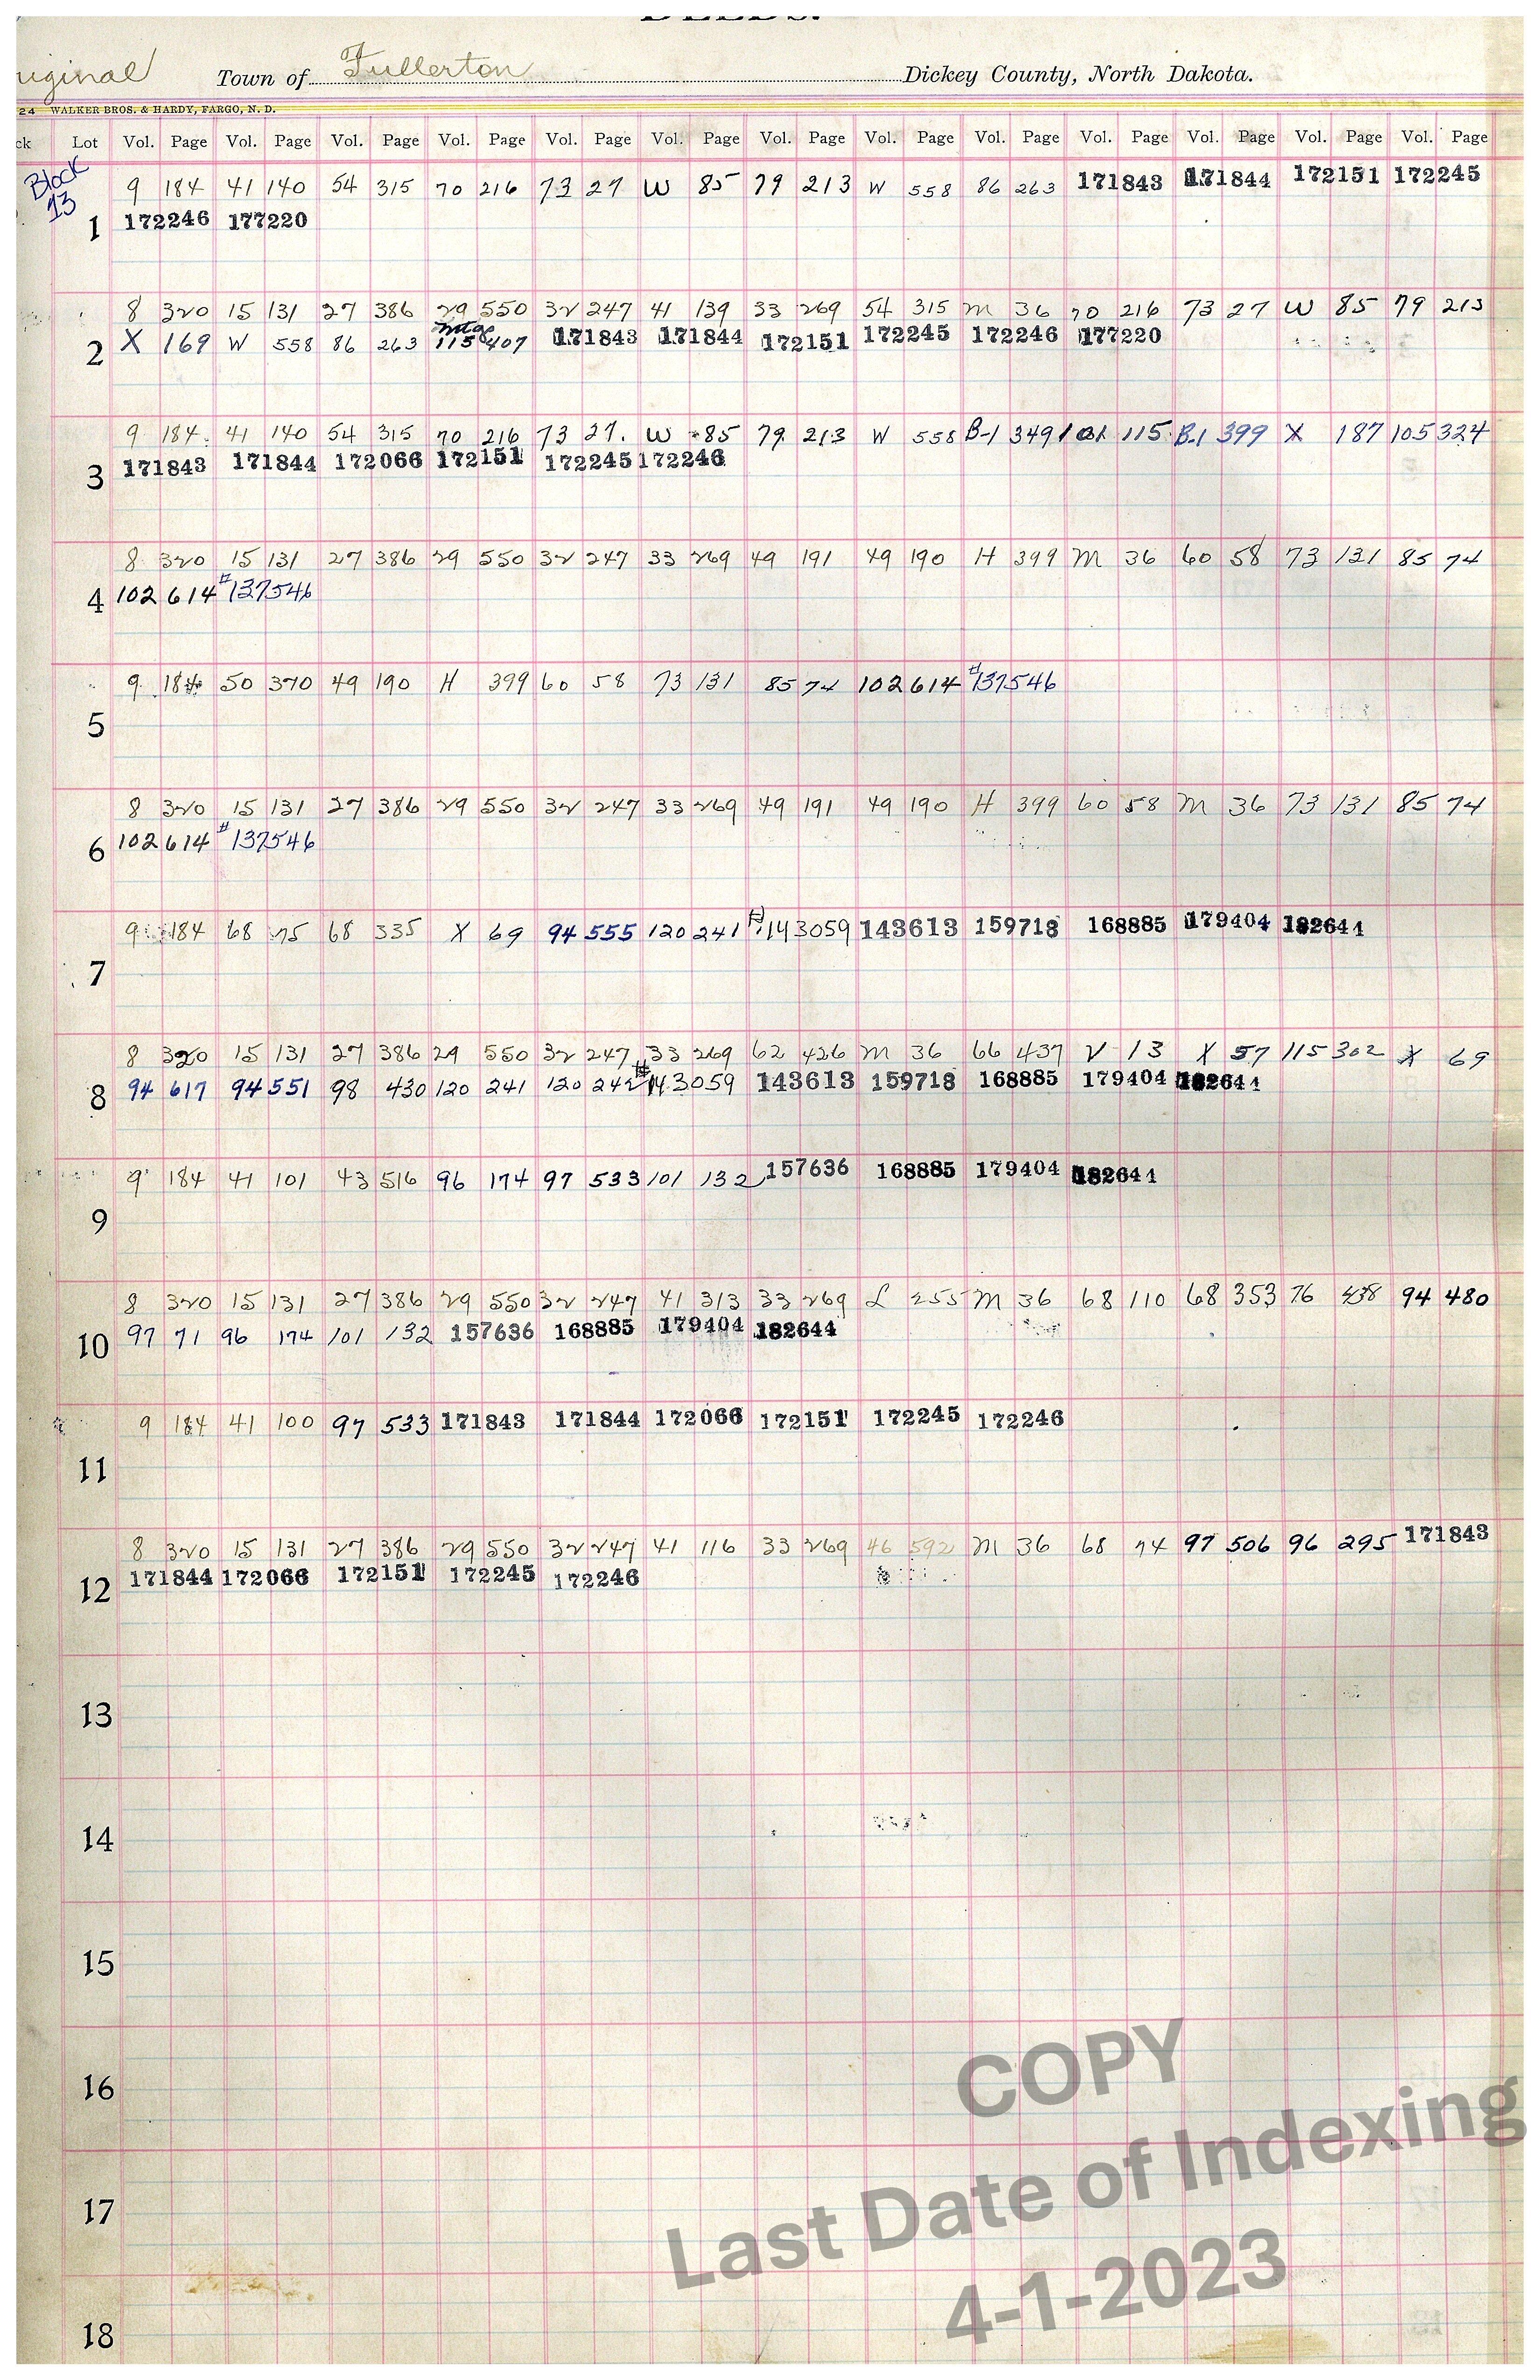 Town of Fullerton Dickey County, North Dakota.
24 WALKER BROS. & HARDY, FARGO, N. D.
Lot Vol. Page Vol. Page Vol. Page Vol. Page Vol. Page Vol. Page Vol. Page Vol. Page Vol. Page Vol. Page Vol. Page Vol. Page Vol. Page
Block
13
9 184 41 140 54 315 70 216 73 27 W 85 79 213 W 558 86 263 171843 171844 172151 172245
1 172246 177220
8 320 15 131 27 386 29 550 32 247 41 139 33 269 54 315 M 36 70 216 73 27 W 85 79 213
mtge
2 X 169 W 558 86 263 115 407 171843 171844 172151 172245 172246 177220
9 184 41 140 54 315 70 216 73 27 W 85 79 213 W 558 B-1 349 101 115 B-1 399 X 187 105 324
3 171843 171844 172066 172151 172245 172246
8 320 15 131 27 386 29 550 32 247 33 269 49 191 49 190 H 399 M 36 60 58 73 131 85 74
4 102 614 #137546
9 184 50 370 49 190 H 399 60 58 73 131 85 74 102 614 #137546
5
8 320 15 131 27 386 29 550 32 247 33 269 49 191 49 190 H 399 60 58 M 36 73 131 85 74
6 102 614 #137546
9 184 68 75 68 335 X 69 94 555 120 241 #143059 143613 159718 168885 179404 182644
7
8 320 15 131 27 386 29 550 32 247 33 269 62 426 M 36 66 437 V 13 X 57 115 302 X 69
8 94 617 94 551 98 430 120 241 120 242 #143059 143613 159718 168885 179404 182644
9 184 41 101 43 516 96 174 97 533 101 132 157636 168885 179404 182644
9
8 320 15 131 27 386 29 550 32 247 41 313 33 269 L 255 M 36 68 110 68 353 76 94 480
10 97 71 96 174 101 132 157636 168885 179404 182644
9 184 41 100 97 533 171843 171844 172066 172151 172245 172246
11
8 320 15 131 27 386 29 550 32 247 41 116 33 269 46 592 M 36 68 74 97 506 96 295 171843
12 171844 172066 172151 172245 172246
13
14
15
16
17
18
COPY
Last Date of Indexing
4-1-2023